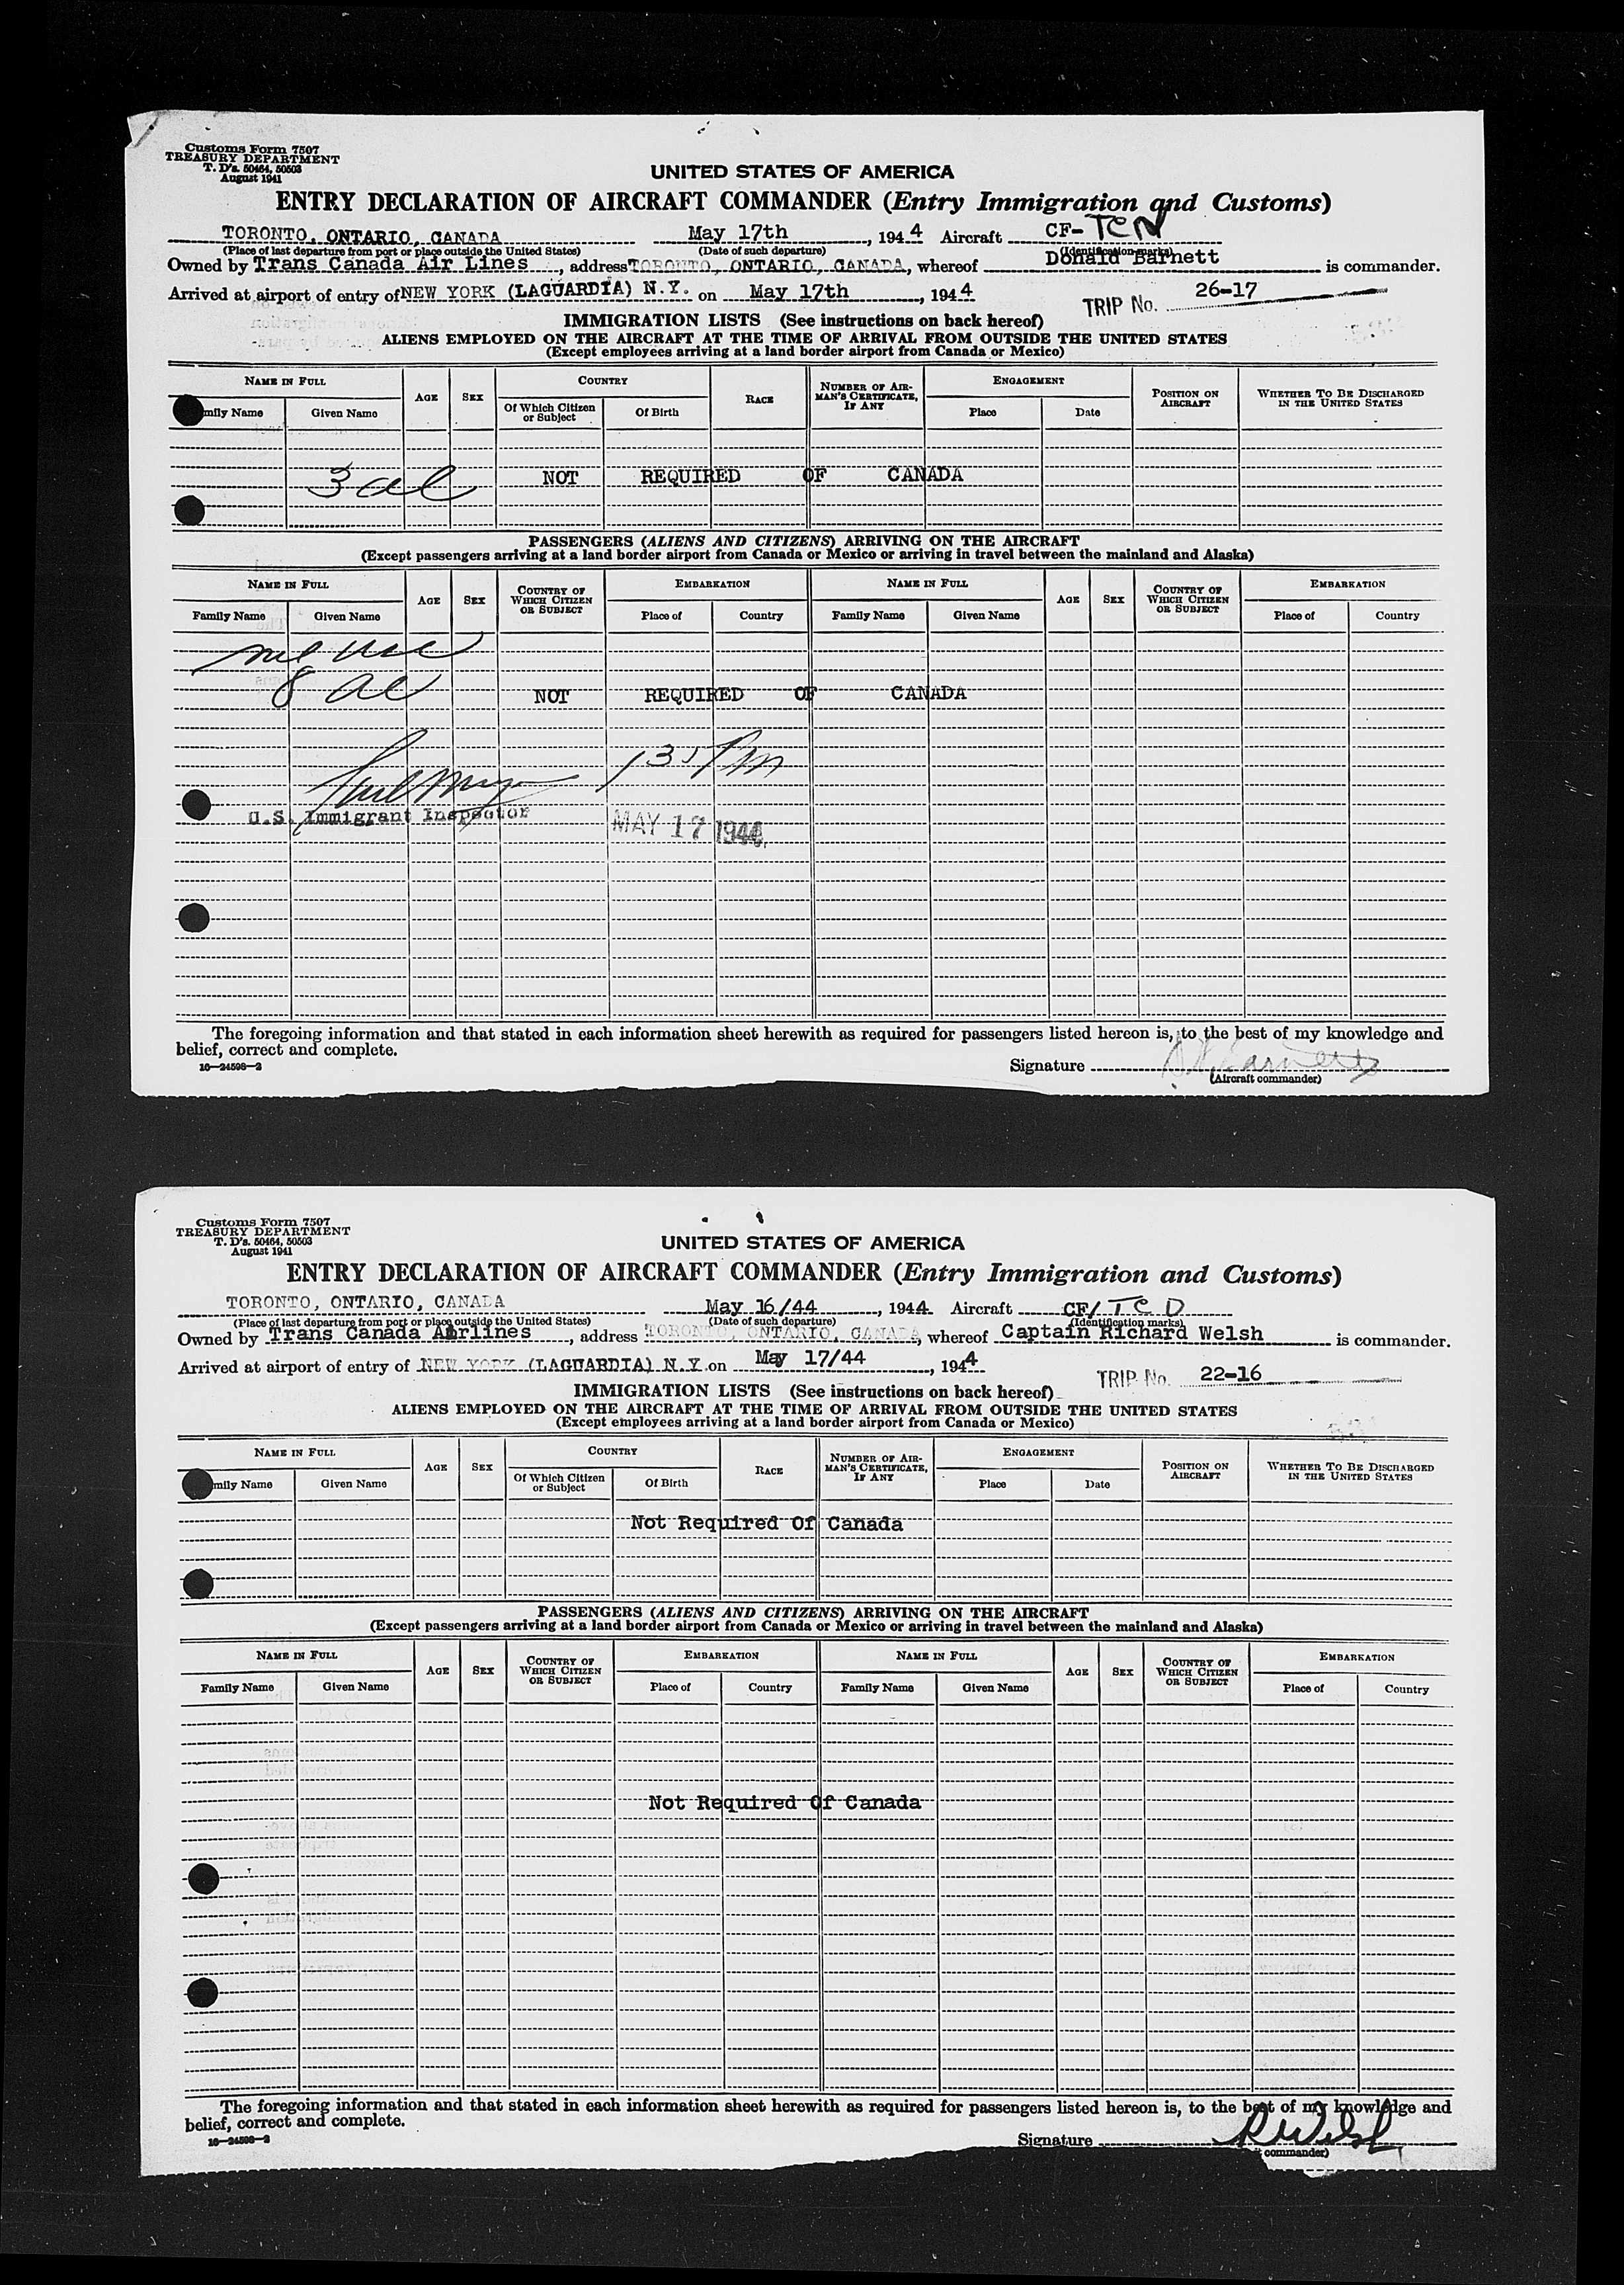 Customs Form 7507
TREASURY DEPARTMENT
T. D's. 50464, 50503
August 1941
UNITED STATES OF AMERICA
ENTRY DECLARATION OF AIRCRAFT COMMANDER (Entry Immigration and Customs)
TORONTO, ONTARIO, CANADA May 17th, 1944 Aircraft CF-TCN
(Place of last departure from port or place outside the United States) (Date of such departure) (Identification marks)
Owned by Trans Canada Air Lines, address TORONTO, ONTARIO, CANADA, whereof Donald Barnett is commander.
Arrived at airport of entry of NEW YORK (LAGUARDIA) N.Y. on May 17th, 1944 TRIP No. 26-17
IMMIGRATION LISTS (See instructions on back hereof)
ALIENS EMPLOYED ON THE AIRCRAFT AT THE TIME OF ARRIVAL FROM OUTSIDE THE UNITED STATES
(Except employees arriving at a land border airport from Canada or Mexico)
NAME IN FULL AGE SEX COUNTRY RACE NUMBER OF AIRMAN'S CERTIFICATE, IF ANY ENGAGEMENT POSITION ON AIRCRAFT WHETHER TO BE DISCHARGED IN THE UNITED STATES
mily Name Given Name Of Which Citizen or Subject Of Birth Place Date
3 al NOT REQUIRED OF CANADA
PASSENGERS (ALIENS AND CITIZENS) ARRIVING ON THE AIRCRAFT
(Except passengers arriving at a land border airport from Canada or Mexico or arriving in travel between the mainland and Alaska)
NAME IN FULL AGE SEX COUNTRY OF WHICH CITIZEN OR SUBJECT EMBARKATION NAME IN FULL AGE SEX COUNTRY OF WHICH CITIZEN OR SUBJECT EMBARKATION
Family Name Given Name Place of Country Family Name Given Name Place of Country
8 al NOT REQUIRED OF CANADA
135 Pm
U.S. Immigrant Inspector MAY 17 1944
The foregoing information and that stated in each information sheet herewith as required for passengers listed hereon is, to the best of my knowledge and
belief, correct and complete.
16—24598—2 Signature Barnett
(Aircraft commander)
Customs Form 7507
TREASURY DEPARTMENT
T. D's. 50464, 50503
August 1941
UNITED STATES OF AMERICA
ENTRY DECLARATION OF AIRCRAFT COMMANDER (Entry Immigration and Customs)
TORONTO, ONTARIO, CANADA May 16/44, 1944 Aircraft CF/TCD
(Place of last departure from port or place outside the United States) (Date of such departure) (Identification marks)
Owned by Trans Canada Airlines, address TORONTO, ONTARIO, CANADA, whereof Captain Richard Welsh is commander.
Arrived at airport of entry of NEW YORK (LAGUARDIA) N.Y. on May 17/44, 1944 TRIP No. 22-16
IMMIGRATION LISTS (See instructions on back hereof)
ALIENS EMPLOYED ON THE AIRCRAFT AT THE TIME OF ARRIVAL FROM OUTSIDE THE UNITED STATES
(Except employees arriving at a land border airport from Canada or Mexico)
NAME IN FULL AGE SEX COUNTRY RACE NUMBER OF AIRMAN'S CERTIFICATE, IF ANY ENGAGEMENT POSITION ON AIRCRAFT WHETHER TO BE DISCHARGED IN THE UNITED STATES
mily Name Given Name Of Which Citizen or Subject Of Birth Place Date
Not Required Of Canada
PASSENGERS (ALIENS AND CITIZENS) ARRIVING ON THE AIRCRAFT
(Except passengers arriving at a land border airport from Canada or Mexico or arriving in travel between the mainland and Alaska)
NAME IN FULL AGE SEX COUNTRY OF WHICH CITIZEN OR SUBJECT EMBARKATION NAME IN FULL AGE SEX COUNTRY OF WHICH CITIZEN OR SUBJECT EMBARKATION
Family Name Given Name Place of Country Family Name Given Name Place of Country
Not Required Of Canada
The foregoing information and that stated in each information sheet herewith as required for passengers listed hereon is, to the best of my knowledge and
belief, correct and complete.
16—24598—2 Signature R Welsh
commander)